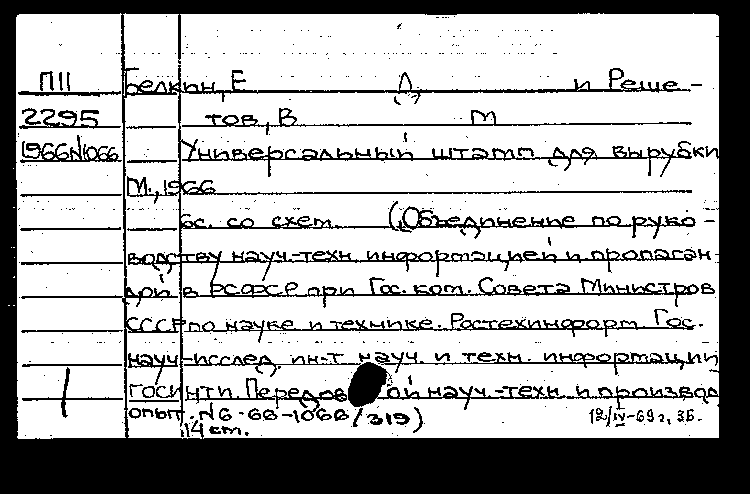 П11 Белкин, Е Д и Реше-
2295 тов, В М
1966N1066 Универсальный штамп для вырубки
М., 1966
6с. со схем. (Объединение по руко-
водству науч.-техн. информацией и пропаган-
дой в РСФСР при Гос. ком. Совета Министров
СССР по науке и технике. Ростехинформ. Гос.
науч-исслед. ин-т науч. и техн. информации
ГОСИНТИ. Передов ой науч.-техн. и производ
опыт. N6-66-1066/319)
14 cm.